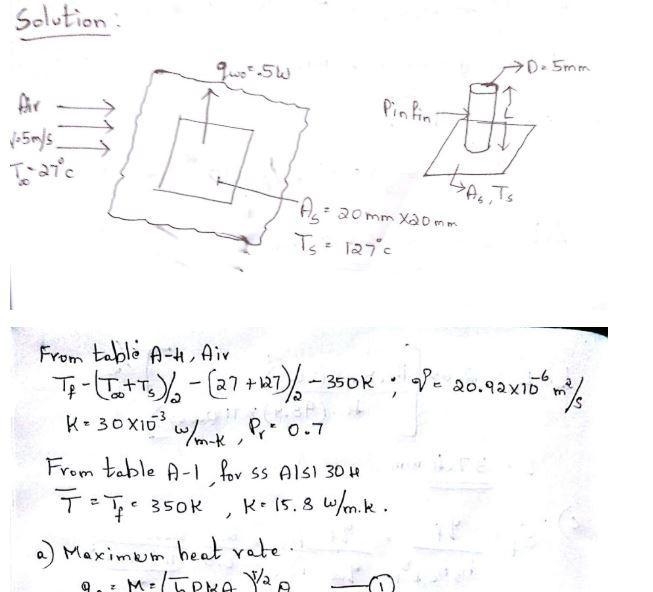 Solution:
q_wo = .5W
D = 5mm
Air
V=5m/s
T∞ = 27°c
Pin fin
L
As, Ts
As = 20mm X 20mm
Ts = 127°c
From table A-4, Air
Tf - (T∞+Ts)/2 - (27+127)/2 - 350K ; ν = 20.92x10^-6 m²/s
K = 30X10^-3 w/m-k, Pr = 0.7
From table A-1, for ss AISI 304
T̅ = Tf = 350K , K = 15.8 w/m.k.
a) Maximum heat rate.
= M = (h̅PKA )^1/2 θ —①